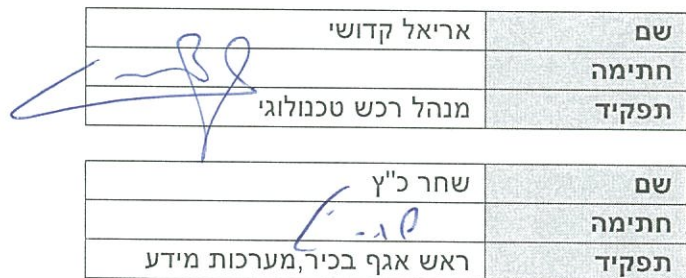 שם אריאל קדושי
חתימה
תפקיד מנהל רכש טכנולוגי
שם שחר כ"ץ
חתימה
תפקיד ראש אגף בכיר,מערכות מידע